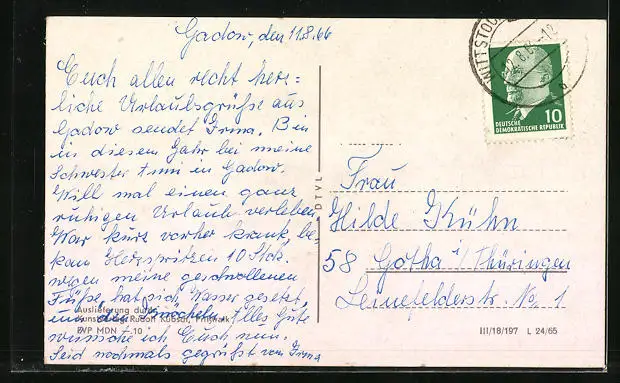 Gadow, den 11.8.66
Euch allen recht herz=
liche Urlaubsgrüße aus
Gadow sendet Irma. Bin
in diesem Jahr bei meine
Schwester in Gadow.
Will mal einen ganz
ruhigen Urlaub verleben
War kurz vorher krank, be
kam Herzspritzen 10 Stck.
wegen meine geschwollenen
Füße, hat sich Wasser gesetzt,
um den Knöcheln. Alles Gute
wünsche ich Euch nun.
Seid nochmals gegrüßt von Irma
Auslieferung durch
Rudolf Kubsch, Pritzwalk
EVP MDN -.10
DTVL
WITTSTOCK
10
DEUTSCHE
DEMOKRATISCHE REPUBLIK
Frau
Hilde Kühn
58 Gotha i/Thüringen
Leinefelderstr. No 1
III/18/197 L 24/65